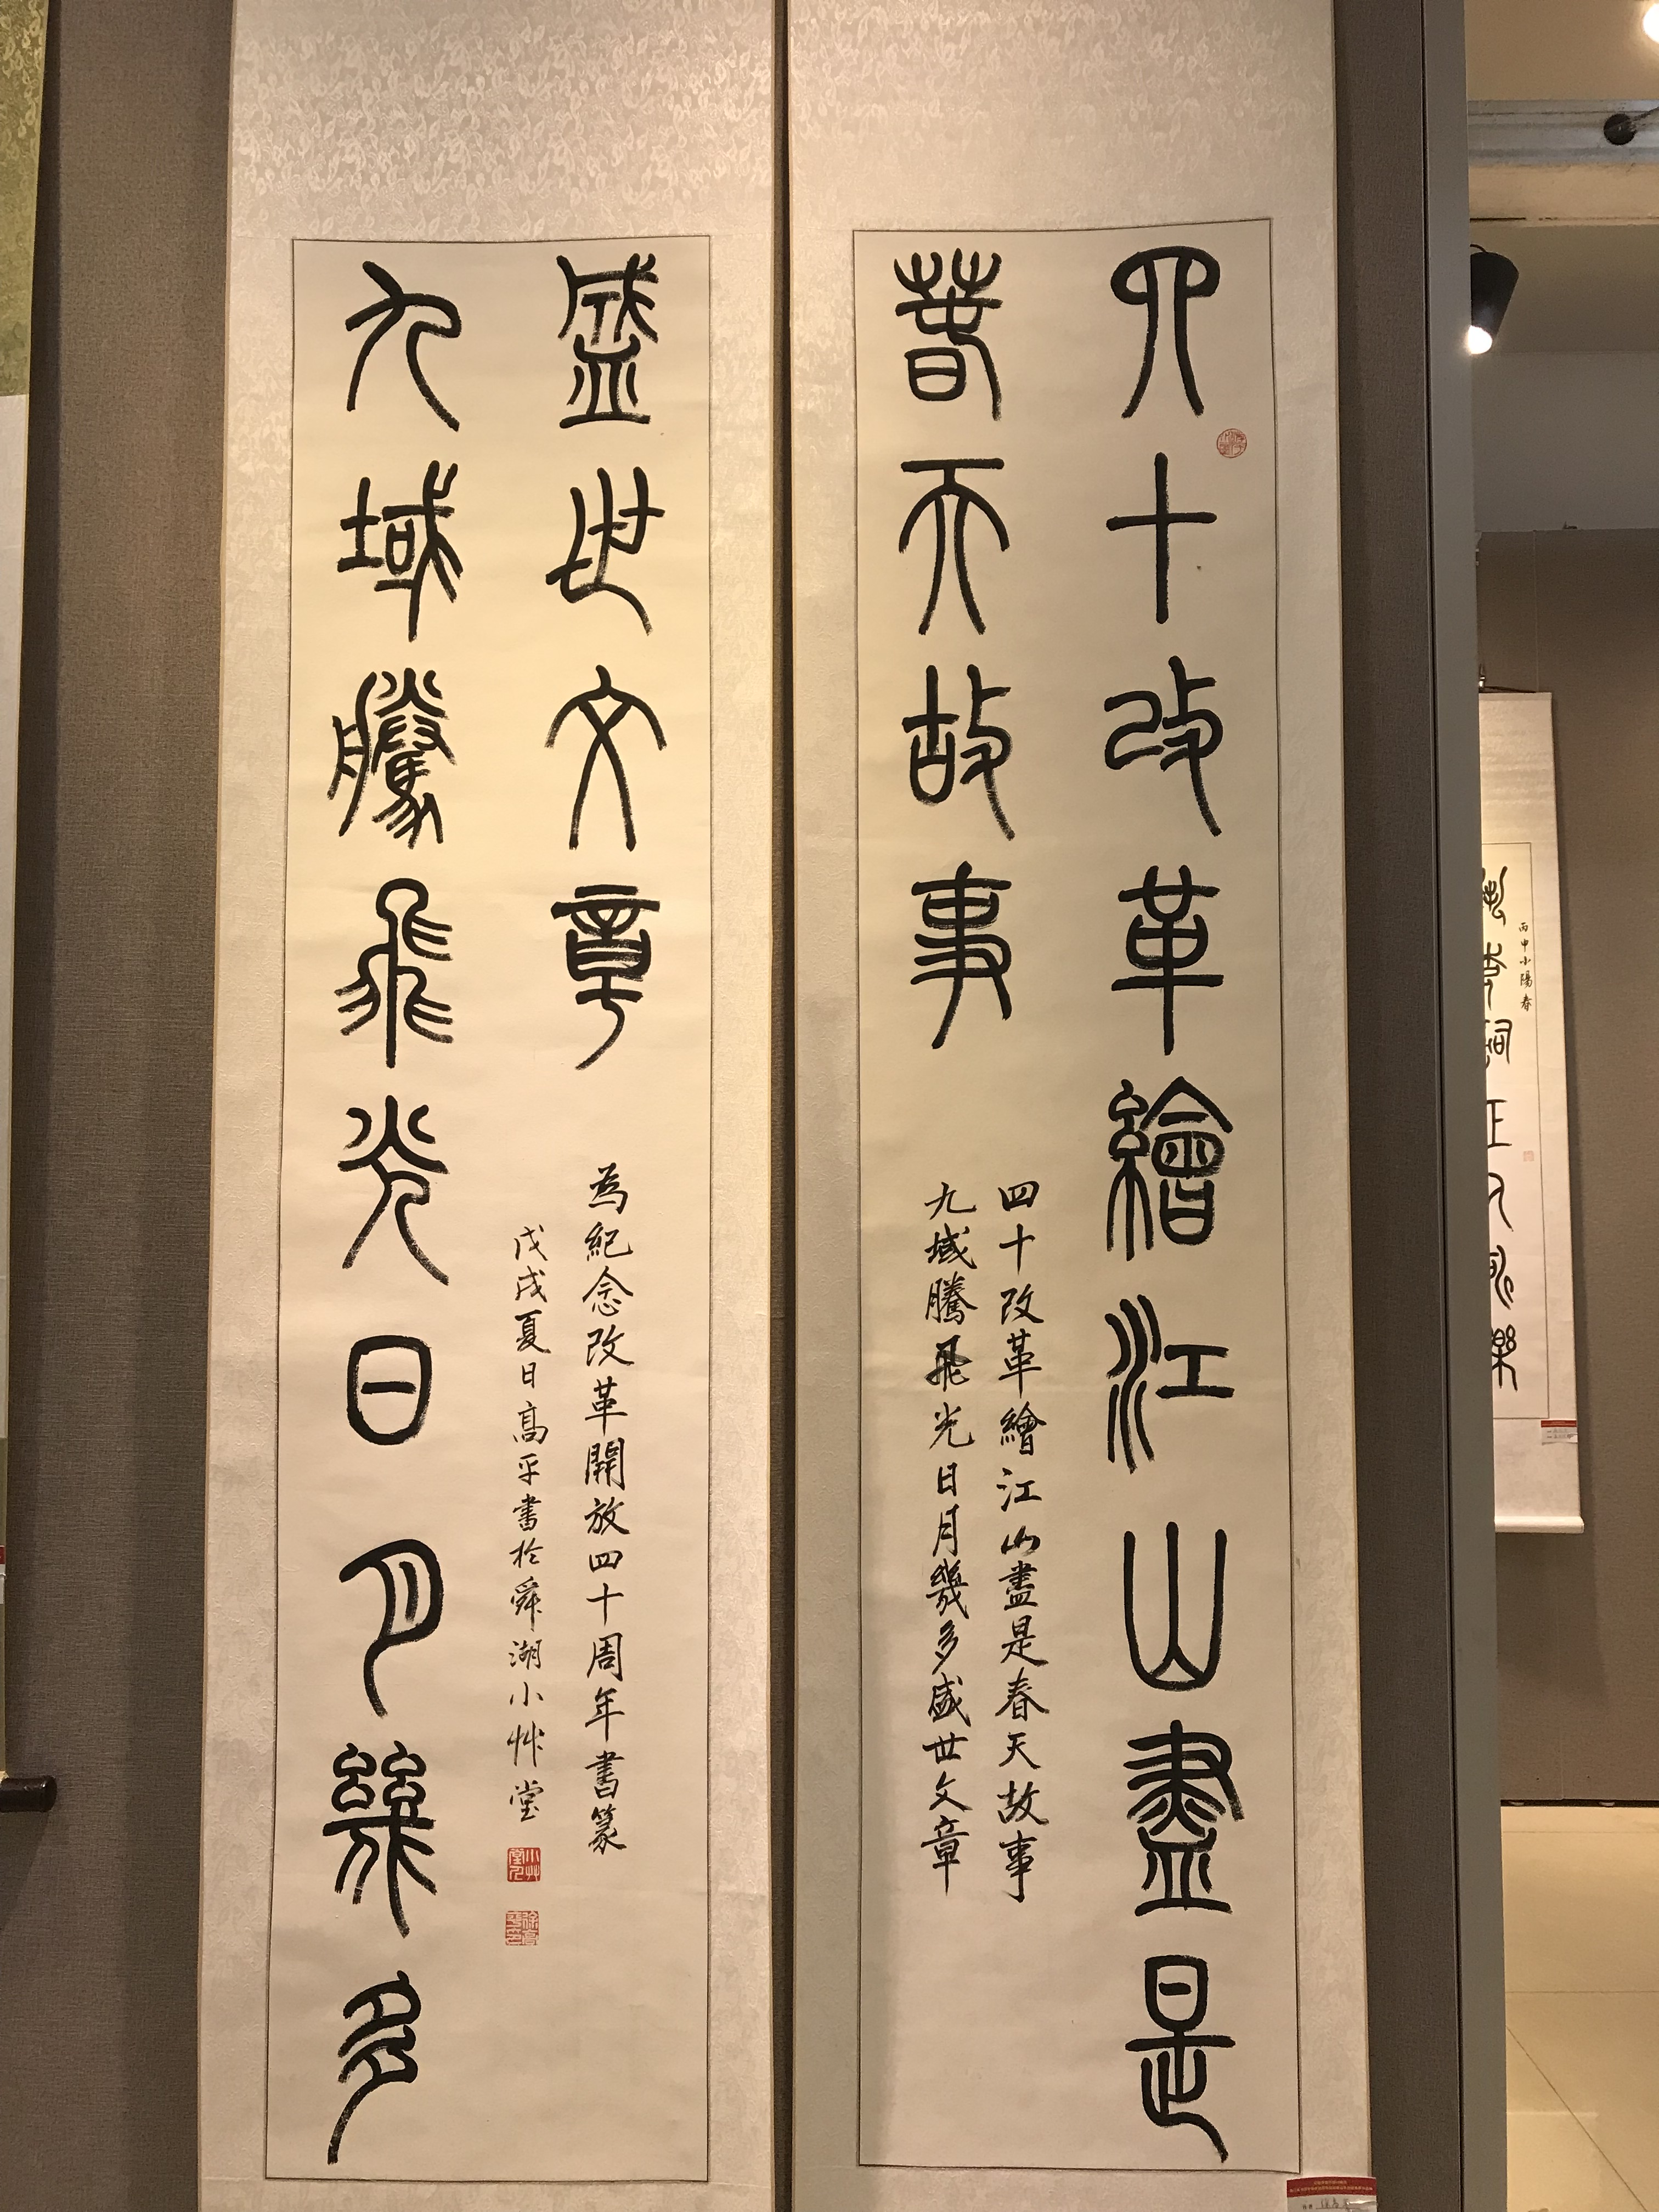 四十改革繪江山盡是
春天故事
四十改革繪江山盡是春天故事
九域騰飛光日月幾多盛世文章
九域騰飛光日月幾多
盛世文章
為紀念改革開放四十周年書篆
戊戌夏日高平書於舜湖小艸堂
丙申小陽春